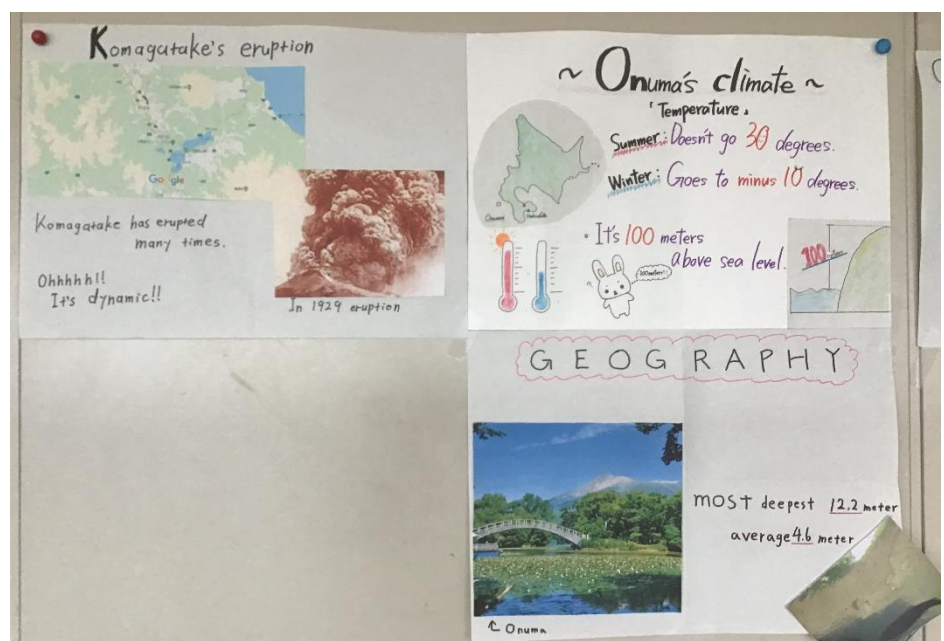 Komagatake's eruption
Google
Komagatake has erupted
many times.
Ohhhhh!!
It's dynamic!!
In 1929 eruption
~ Onuma's climate ~
「Temperature」
Summer: Doesn't go 30 degrees.
Winter: Goes to minus 10 degrees.
• It's 100 meters
above sea level.
100meter!!
100
GEOGRAPHY
MOST deepest 12.2 meter
average 4.6 meter
↑ Onuma